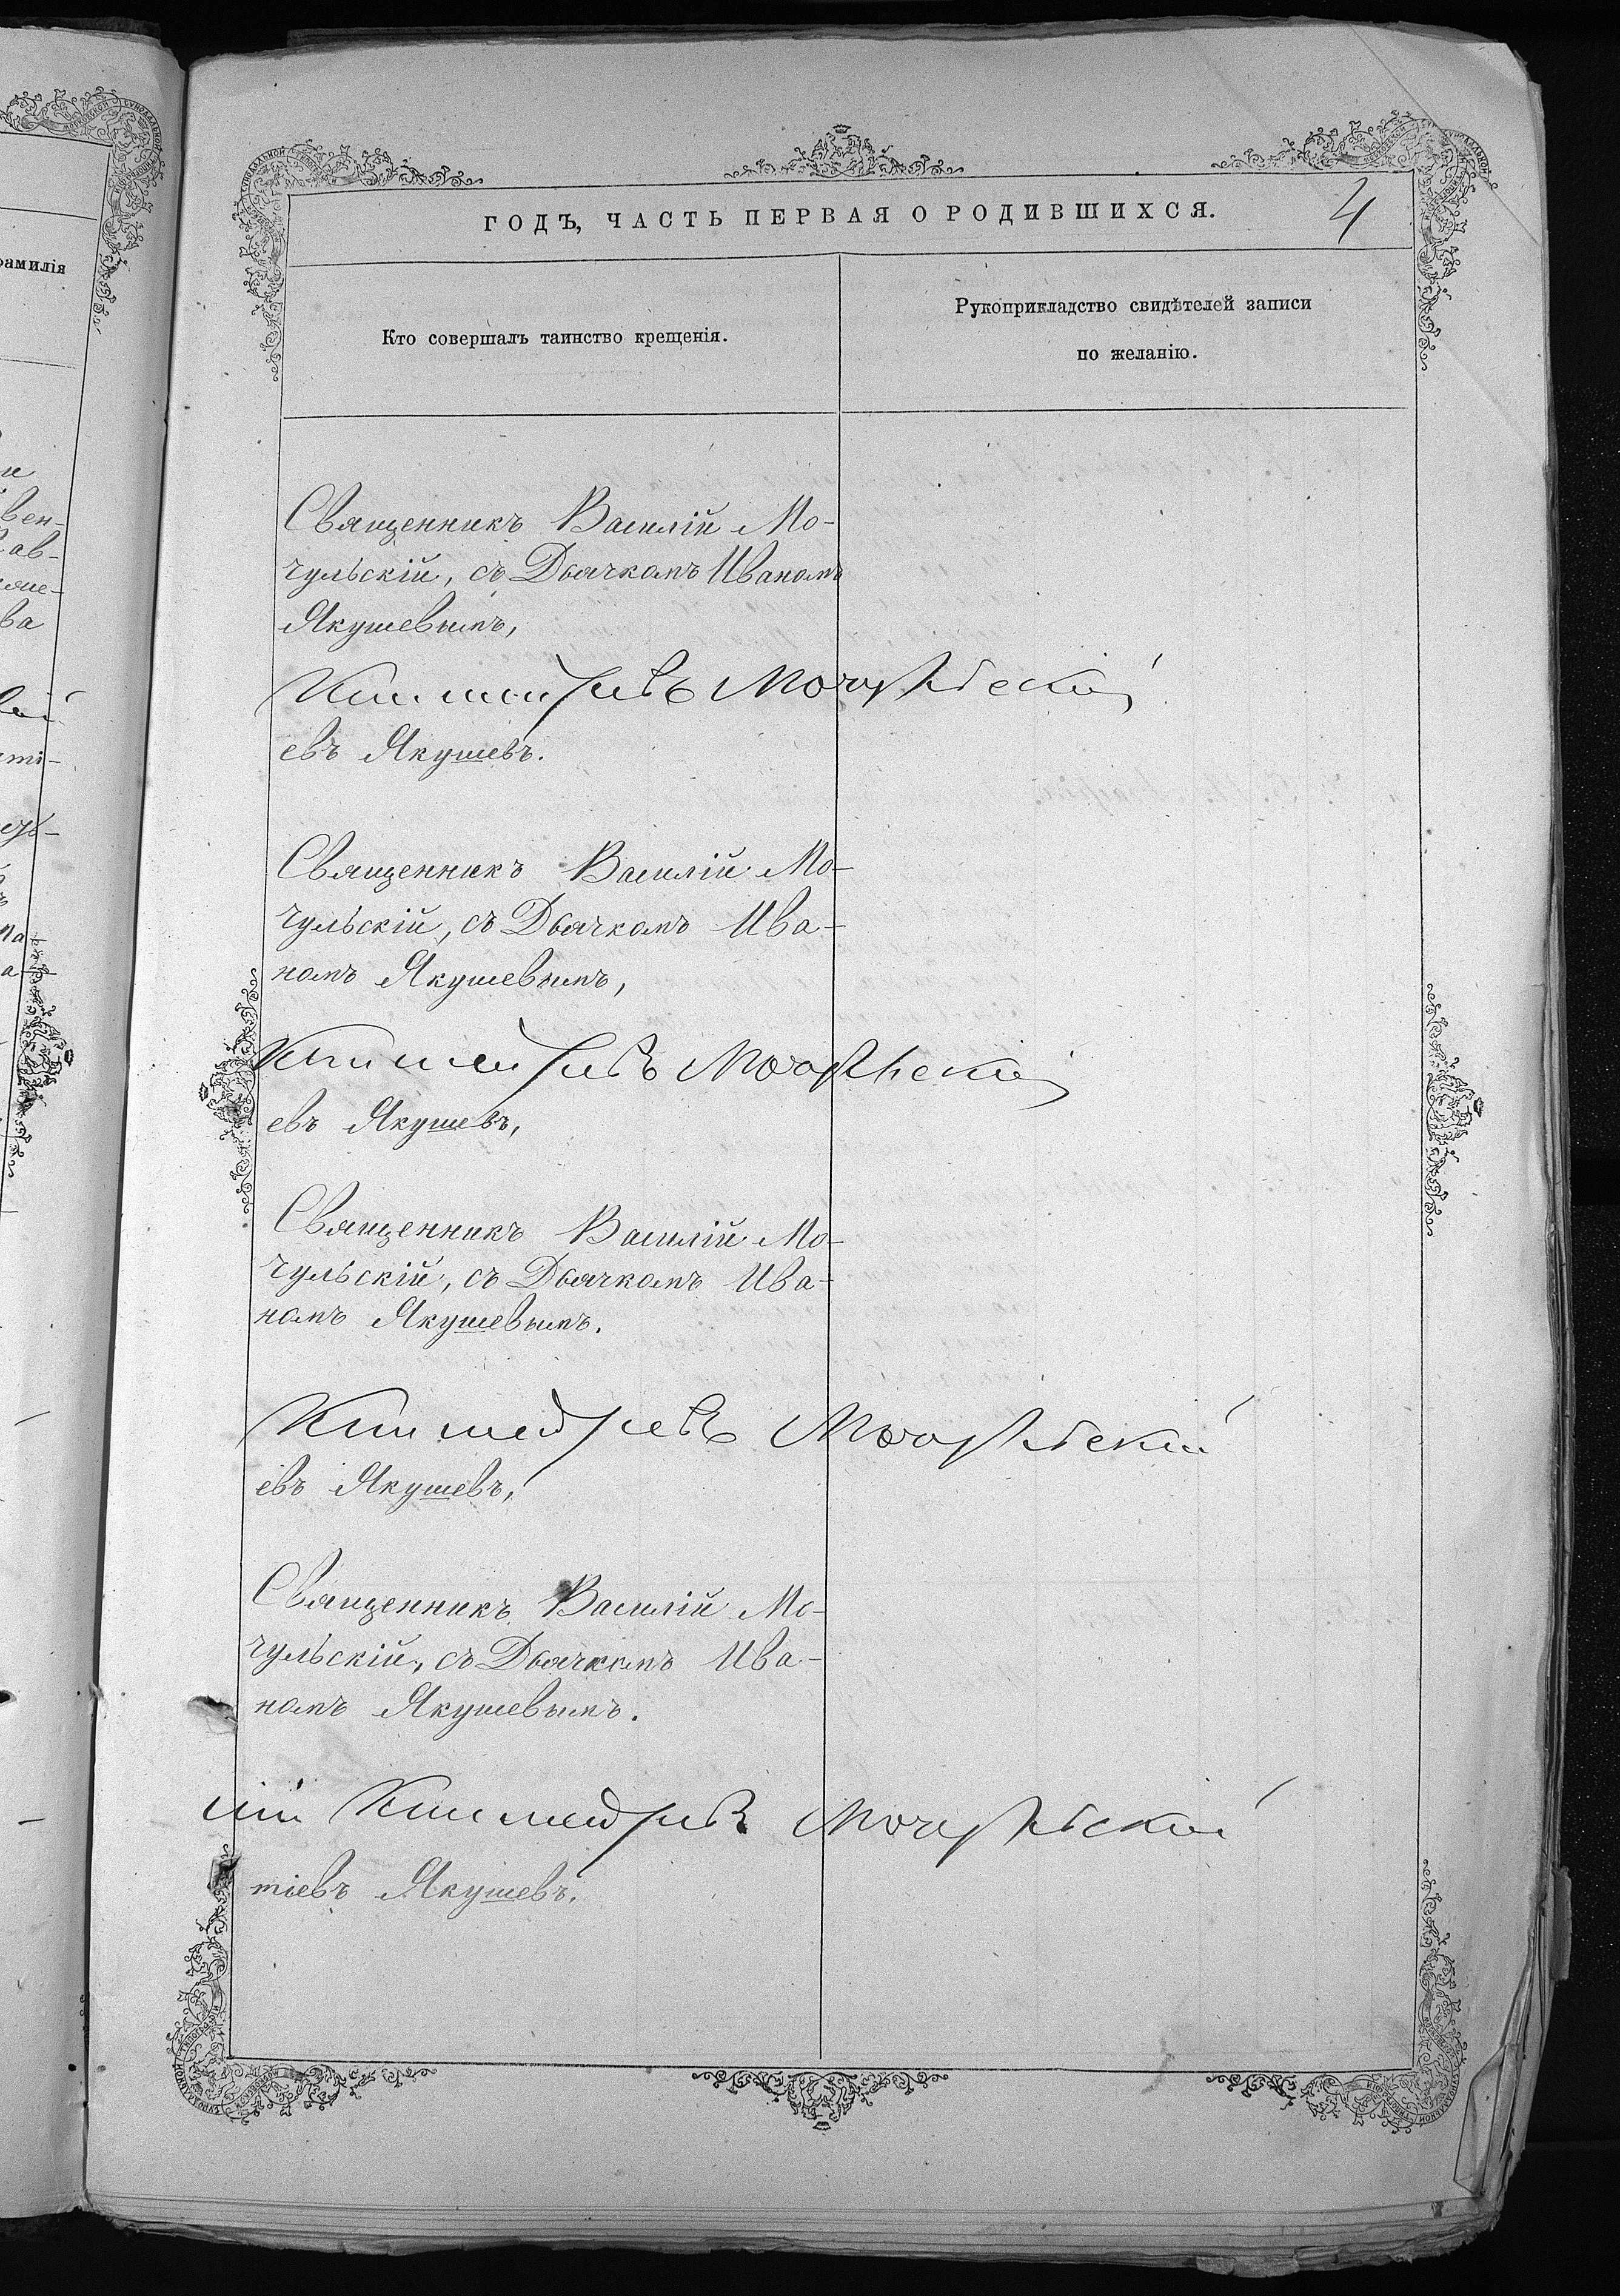 ГОДЪ, ЧАСТЬ ПЕРВАЯ О РОДИВШИХСЯ.
4
Кто совершалъ таинство крещенія.
Рукоприкладство свидѣтелей записи
по желанію.
Священникъ Василій Мо-
чульскій, съ Дьячкомъ Иваномъ
Якушевымъ,
Климентьевъ Мочульскій
евъ Якушевъ.
Священникъ Василій Мо-
чульскій, съ Дьячкомъ Ива-
номъ Якушевымъ,
Мочульскій
евъ Якушевъ,
Священникъ Василій Мо-
чульскій, съ Дьячкомъ Ива-
номъ Якушевымъ.
Мочульскій
евъ Якушевъ,
Священникъ Василій Мо-
чульскій, съ Дьячкомъ Ива-
номъ Якушевымъ.
Мочульскій
тіевъ Якушевъ.
фамилія